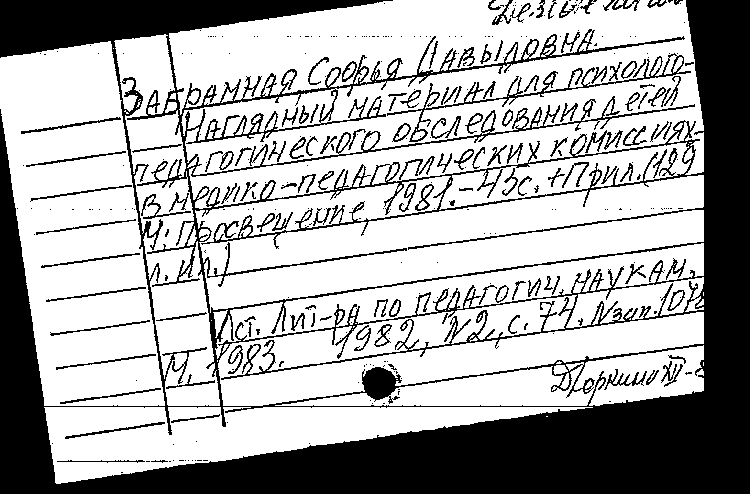 Забрамная, Софья Давыдовна.
Наглядный материал для психолого-
педагогического обследования детей
в медико-педагогических комиссиях.-
М: Просвещение, 1981.-43с.+Прил.(129
л. ил.)
Ист. Лит-ра по педагогич. наукам.
М. 1983. 1982, N2, с. 74. Nзап.1078